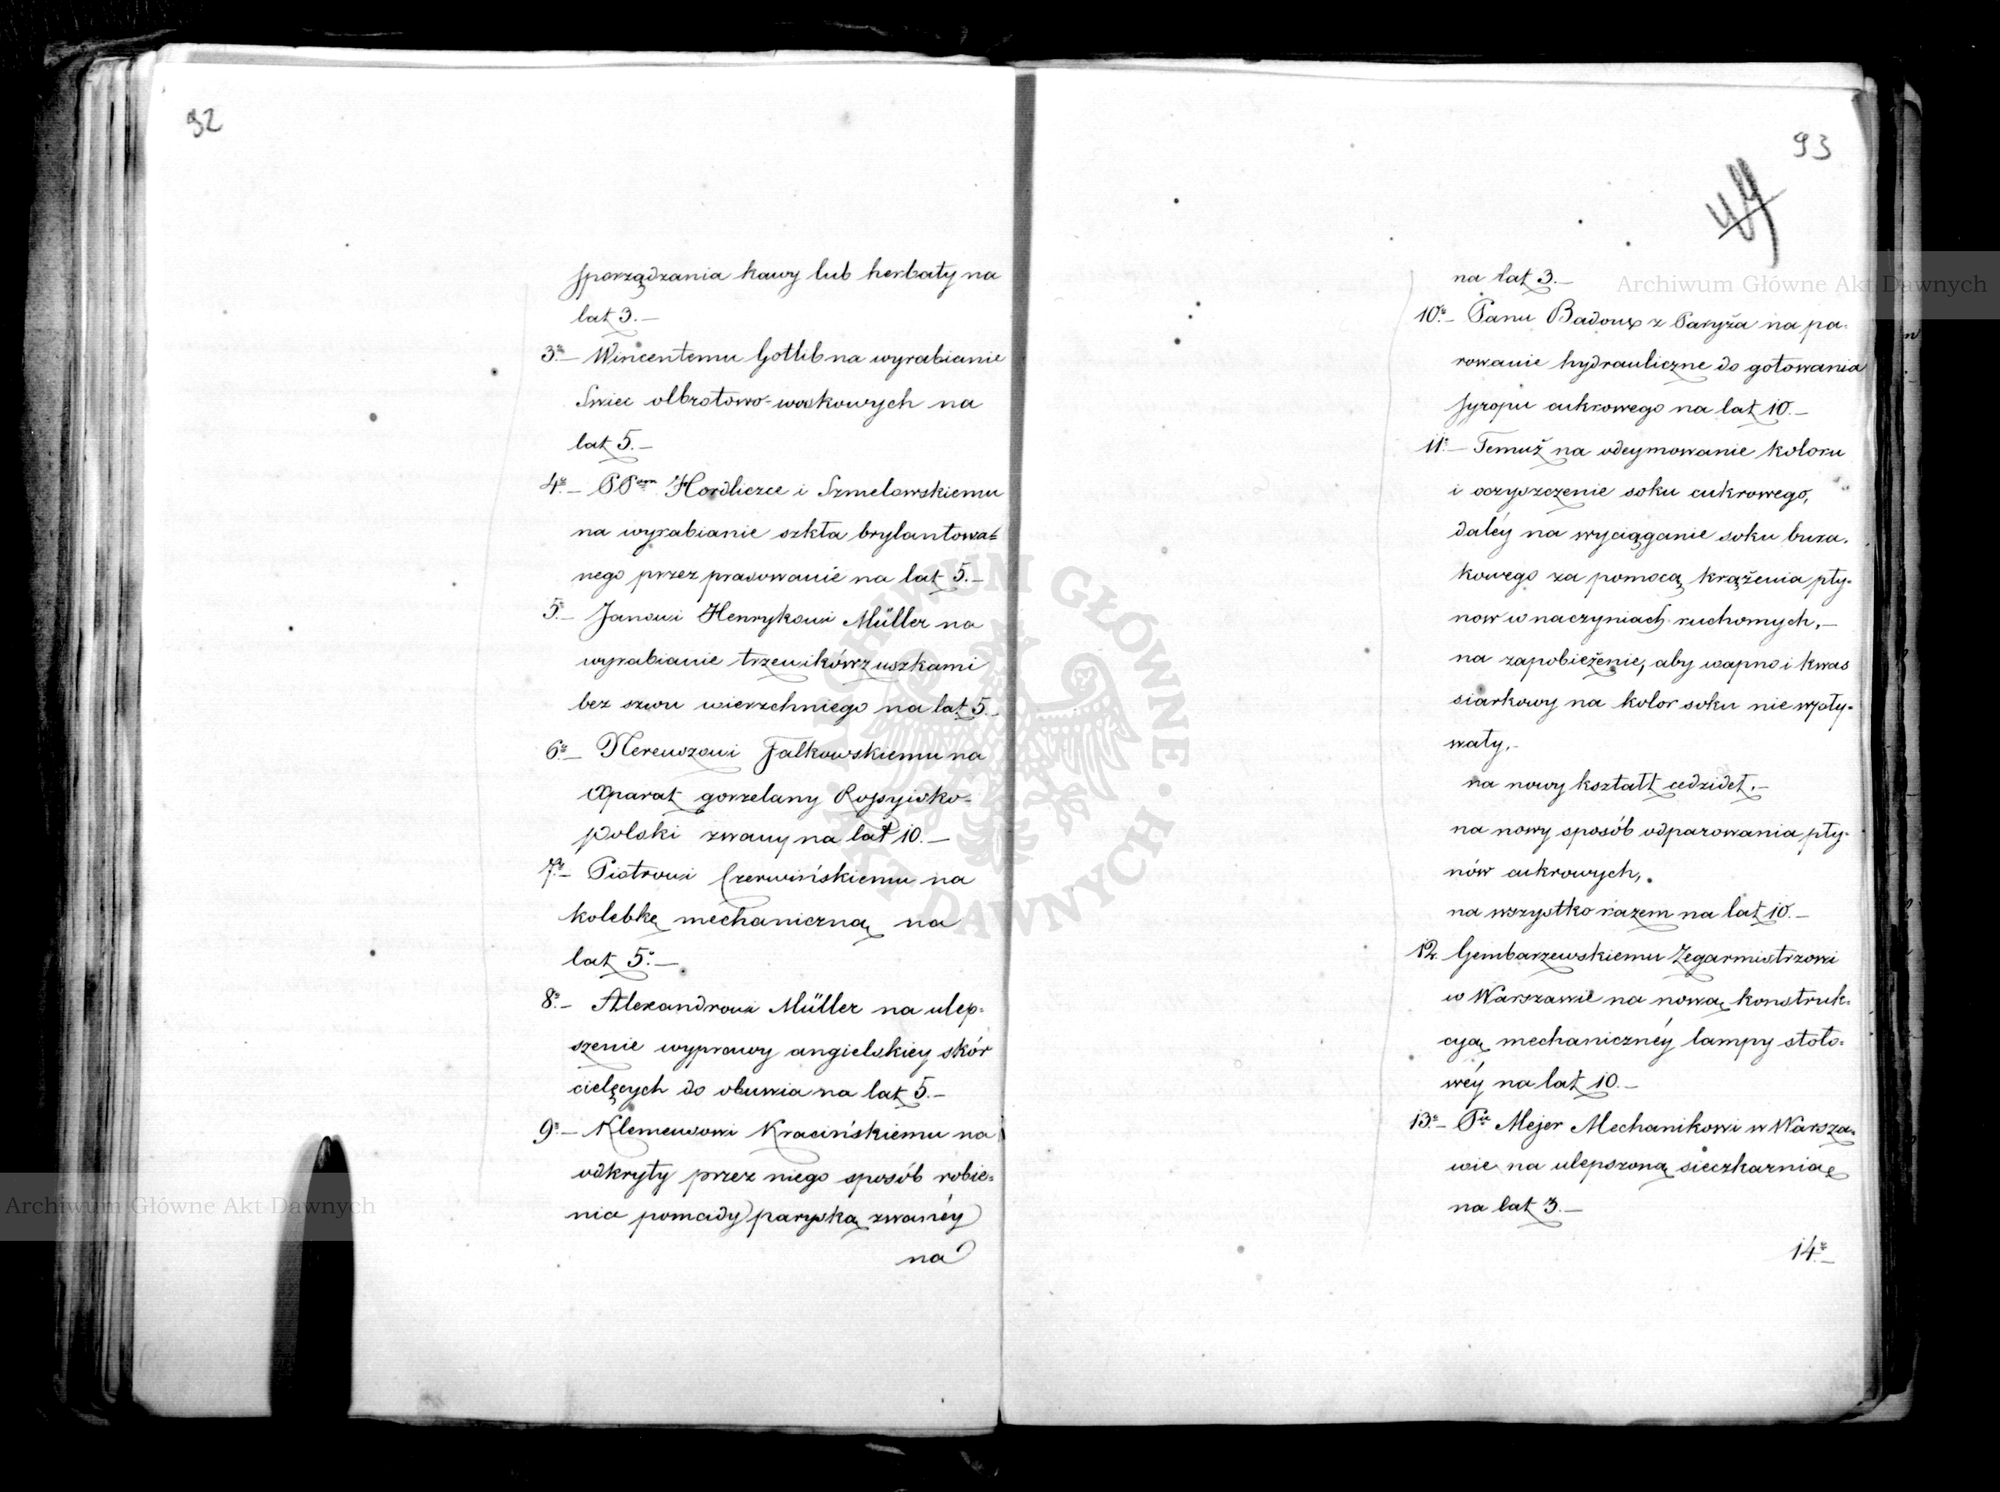 92
sporządzania kawy lub herbaty na
lat 3.—
3º— Wincentemu Gotlib na wyrabianie
Swiec olbrotowo-woskowych na
lat 5.—
4º— PPom Hordliczce i Szmelowskiemu
na wyrabianie szkła brylantowa=
nego przez prasowanie na lat 5.—
5º— Janowi Henrykowi Müller na
wyrabianie trzewików z uszkami
bez szwu wierzchniego na lat 5.—
6º— Nereuszowi Falkowskiemu na
Aparat gorzelany Rossyisko-
polski zwany na lat 10.—
7º— Piotrowi Czerwińskiemu na
kolebkę mechaniczną na
lat 5.—
8º— Alexandrowi Müller na ulep-
szenie wyprawy angielskiey skór
cielęcych do obuwia na lat 5.—
9º— Klemensowi Kracińskiemu na
odkryty przez niego sposób robie=
nia pomady paryską zwanéy
na
93
44
na lat 3.—
10º— Panu Badoux z Paryża na pa-
rowanie hydrauliczne do gotowania
syropu cukrowego na lat 10.—
11º— Temuż na odeymowanie koloru
i oczyszczenie soku cukrowego,
daléy na wyciąganie soku bura-
kowego za pomocą krążenia pły-
now w naczyniach ruchomych,—
na zapobieżenie, aby wapno i kwas
siarkowy na kolor soku nie wpły-
wały,—
na nowy kształt cedzideł,—
na nowy sposób odparowania pły-
nów cukrowych,
na wszystko razem na lat 10.—
12. Gembarzewskiemu Zegarmistrzowi
w Warszawie na nową konstruk-
cyą mechanicznéy lampy stoło-
wéy na lat 10.—
13º— Pu Mejer Mechanikowi w Warsza-
wie na ulepszoną sieczkarnią
na lat 3.—
14º—
Archiwum Główne Akt Dawnych
Archiwum Główne Akt Dawnych
ARCHIWUM GŁÓWNE AKT DAWNYCH